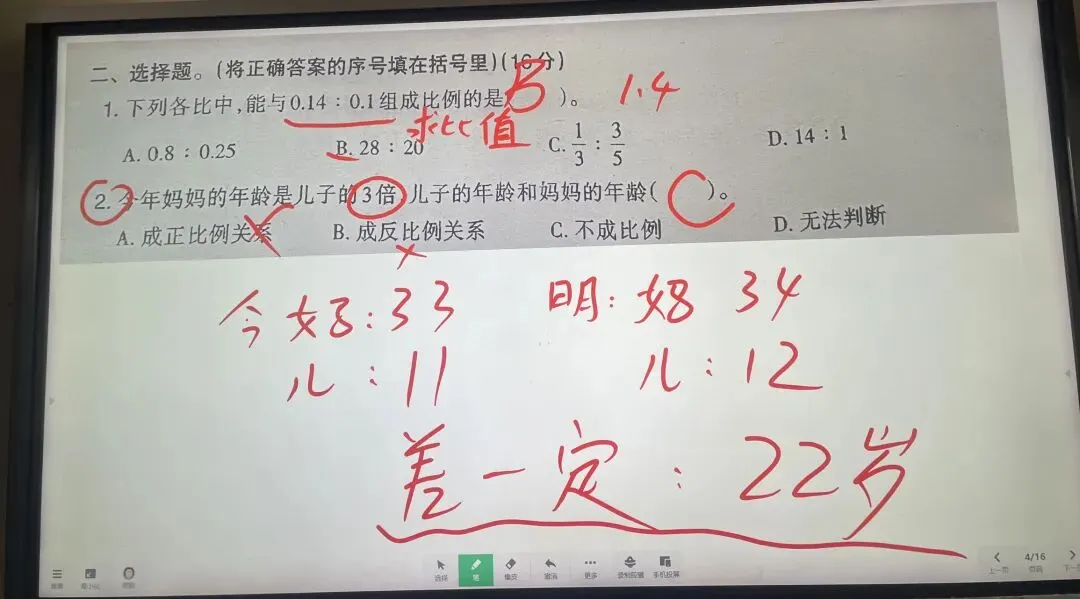 二、选择题。(将正确答案的序号填在括号里)(16分)
1. 下列各比中,能与0.14∶0.1组成比例的是(B)。 1.4
求比值
A. 0.8∶0.25 B. 28∶20 C. 1/3∶3/5 D. 14∶1
2. 今年妈妈的年龄是儿子的3倍,儿子的年龄和妈妈的年龄(C)。
A. 成正比例关系 B. 成反比例关系 C. 不成比例 D. 无法判断
今 妈:33 明:妈 34
儿:11 儿:12
差一定:22岁
选择 笔 橡皮 撤消 更多 录制胶囊 手机投屏
4/16
上一页 页码 下一